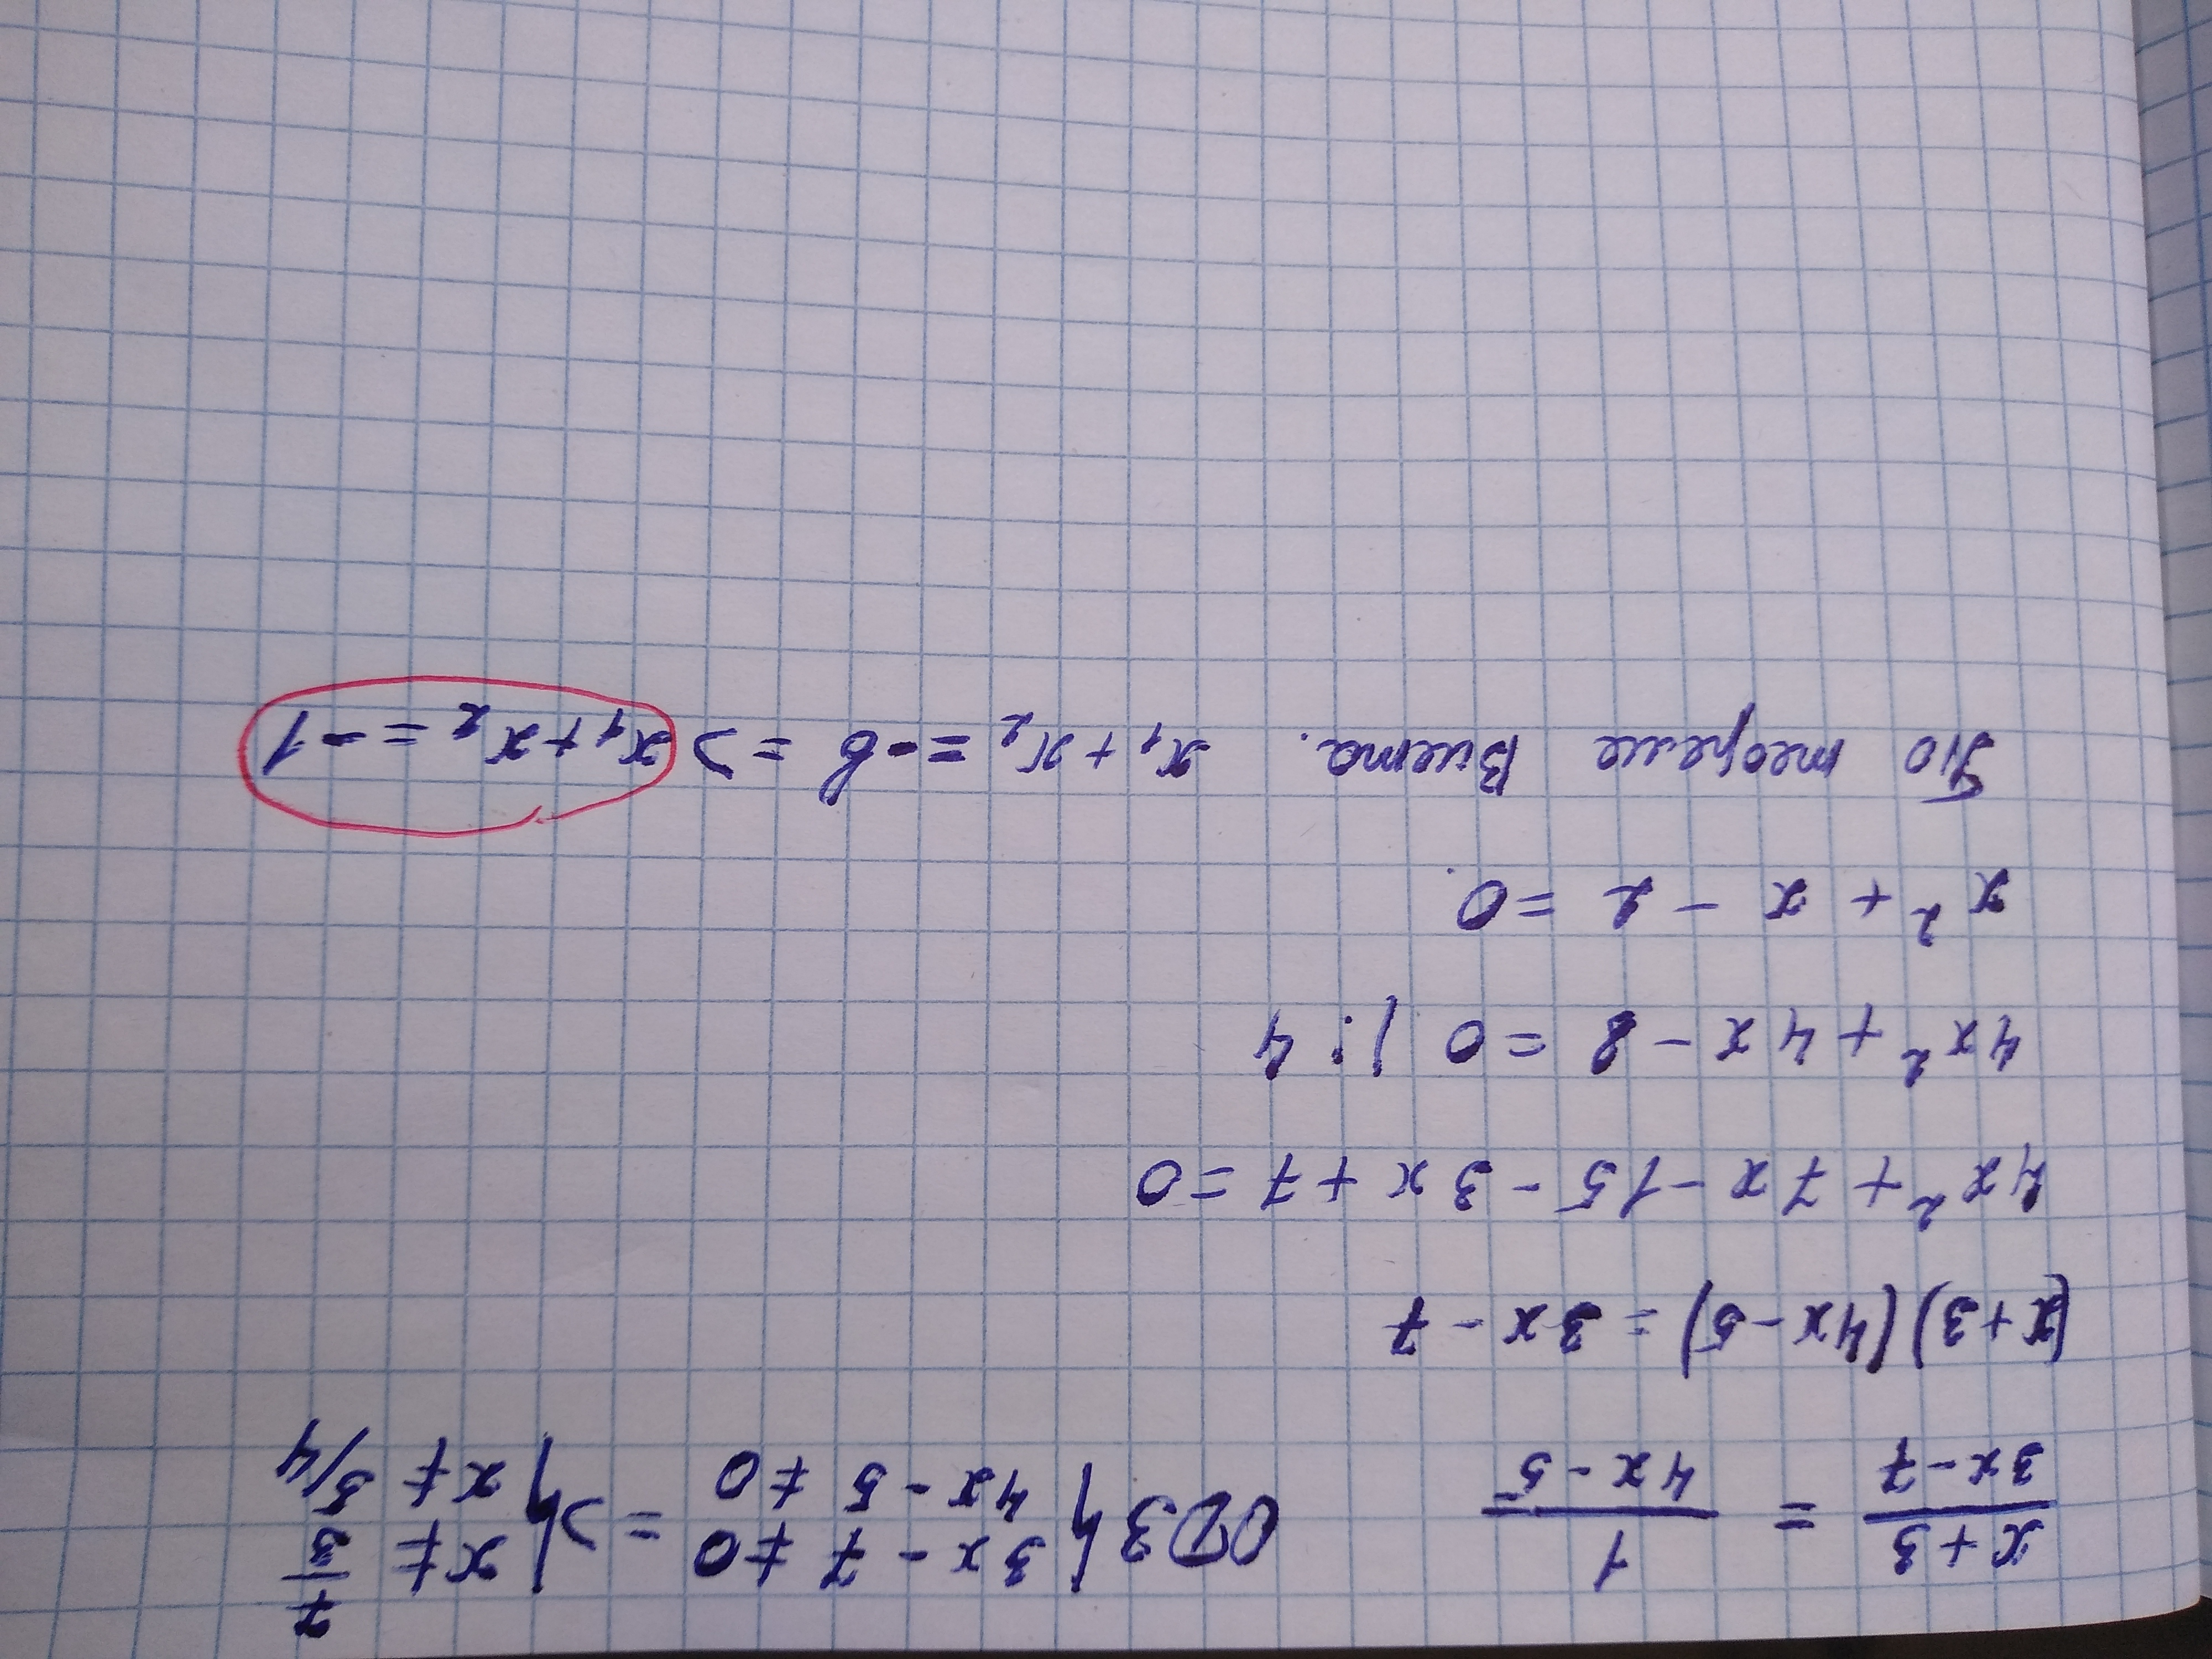 x+3/3x-7 = 1/4x-5 ОДЗ { 3x - 7 ≠ 0 => { x ≠ 7/3
4x - 5 ≠ 0 x ≠ 5/4
(x+3)(4x-5) = 3x - 7
4x² + 7x - 15 - 3x + 7 = 0
4x² + 4x - 8 = 0 | : 4
x² + x - 2 = 0
По теореме Виета. x₁ + x₂ = -b => x₁ + x₂ = -1